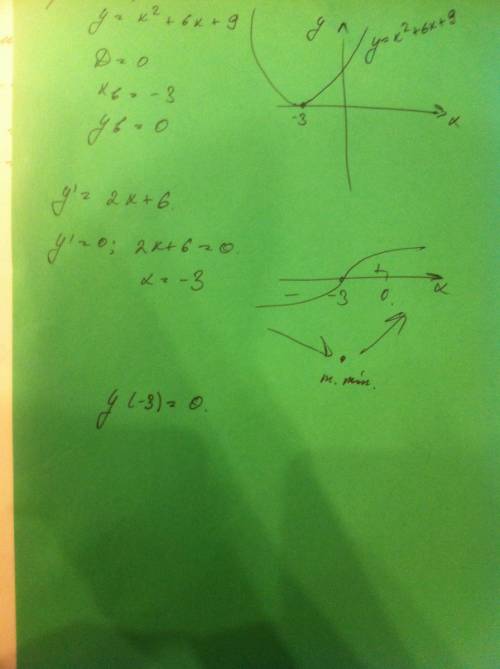 y = x² + 6x + 9
D = 0
xв = -3
yв = 0
y
y = x² + 6x + 9
-3
x
y' = 2x + 6.
y' = 0; 2x + 6 = 0.
x = -3
- -3 + 0. x
m. min.
y (-3) = 0.